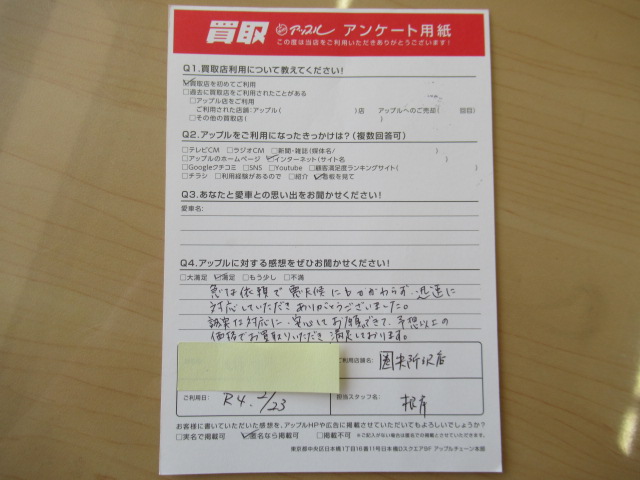 買取 アップル アンケート用紙
この度は当店をご利用いただきありがとうございます!
Q1.買取店利用について教えてください!
☑買取店を初めてご利用
□過去に買取店をご利用されたことがある
□アップル店をご利用
ご利用された店舗:アップル( )店 アップルへのご売却( 回目)
□その他の買取店( )
Q2.アップルをご利用になったきっかけは?(複数回答可)
□テレビCM □ラジオCM □新聞・雑誌(媒体名/ )
□アップルのホームページ ☑インターネット(サイト名 )
□Googleクチコミ □SNS □Youtube □顧客満足度ランキングサイト( )
□チラシ □利用経験があるので □紹介 ☑看板を見て
Q3.あなたと愛車との思い出をお聞かせください!
愛車名:
Q4.アップルに対する感想をぜひお聞かせください!
□大満足 ☑満足 □もう少し □不満
急な依頼で悪天候にもかかわらず、迅速に
対応していただきありがとうございました。
誠実な対応に、安心してお願いできて、予想以上の
価格でお買取りいただき満足しております。
ご利用店舗名: 圏央所沢店
ご利用日: R4. 2/23 担当スタッフ名: 根岸
お客様に書いていただいた感想を、アップルHPや広告に掲載させていただいてもよろしいでしょうか?
□実名で掲載可 ☑匿名なら掲載可 □掲載不可 ※ご記入がない場合は匿名での掲載とさせていただきます。
東京都中央区日本橋1丁目16番11号日本橋Dスクエア8F アップルチェーン本部